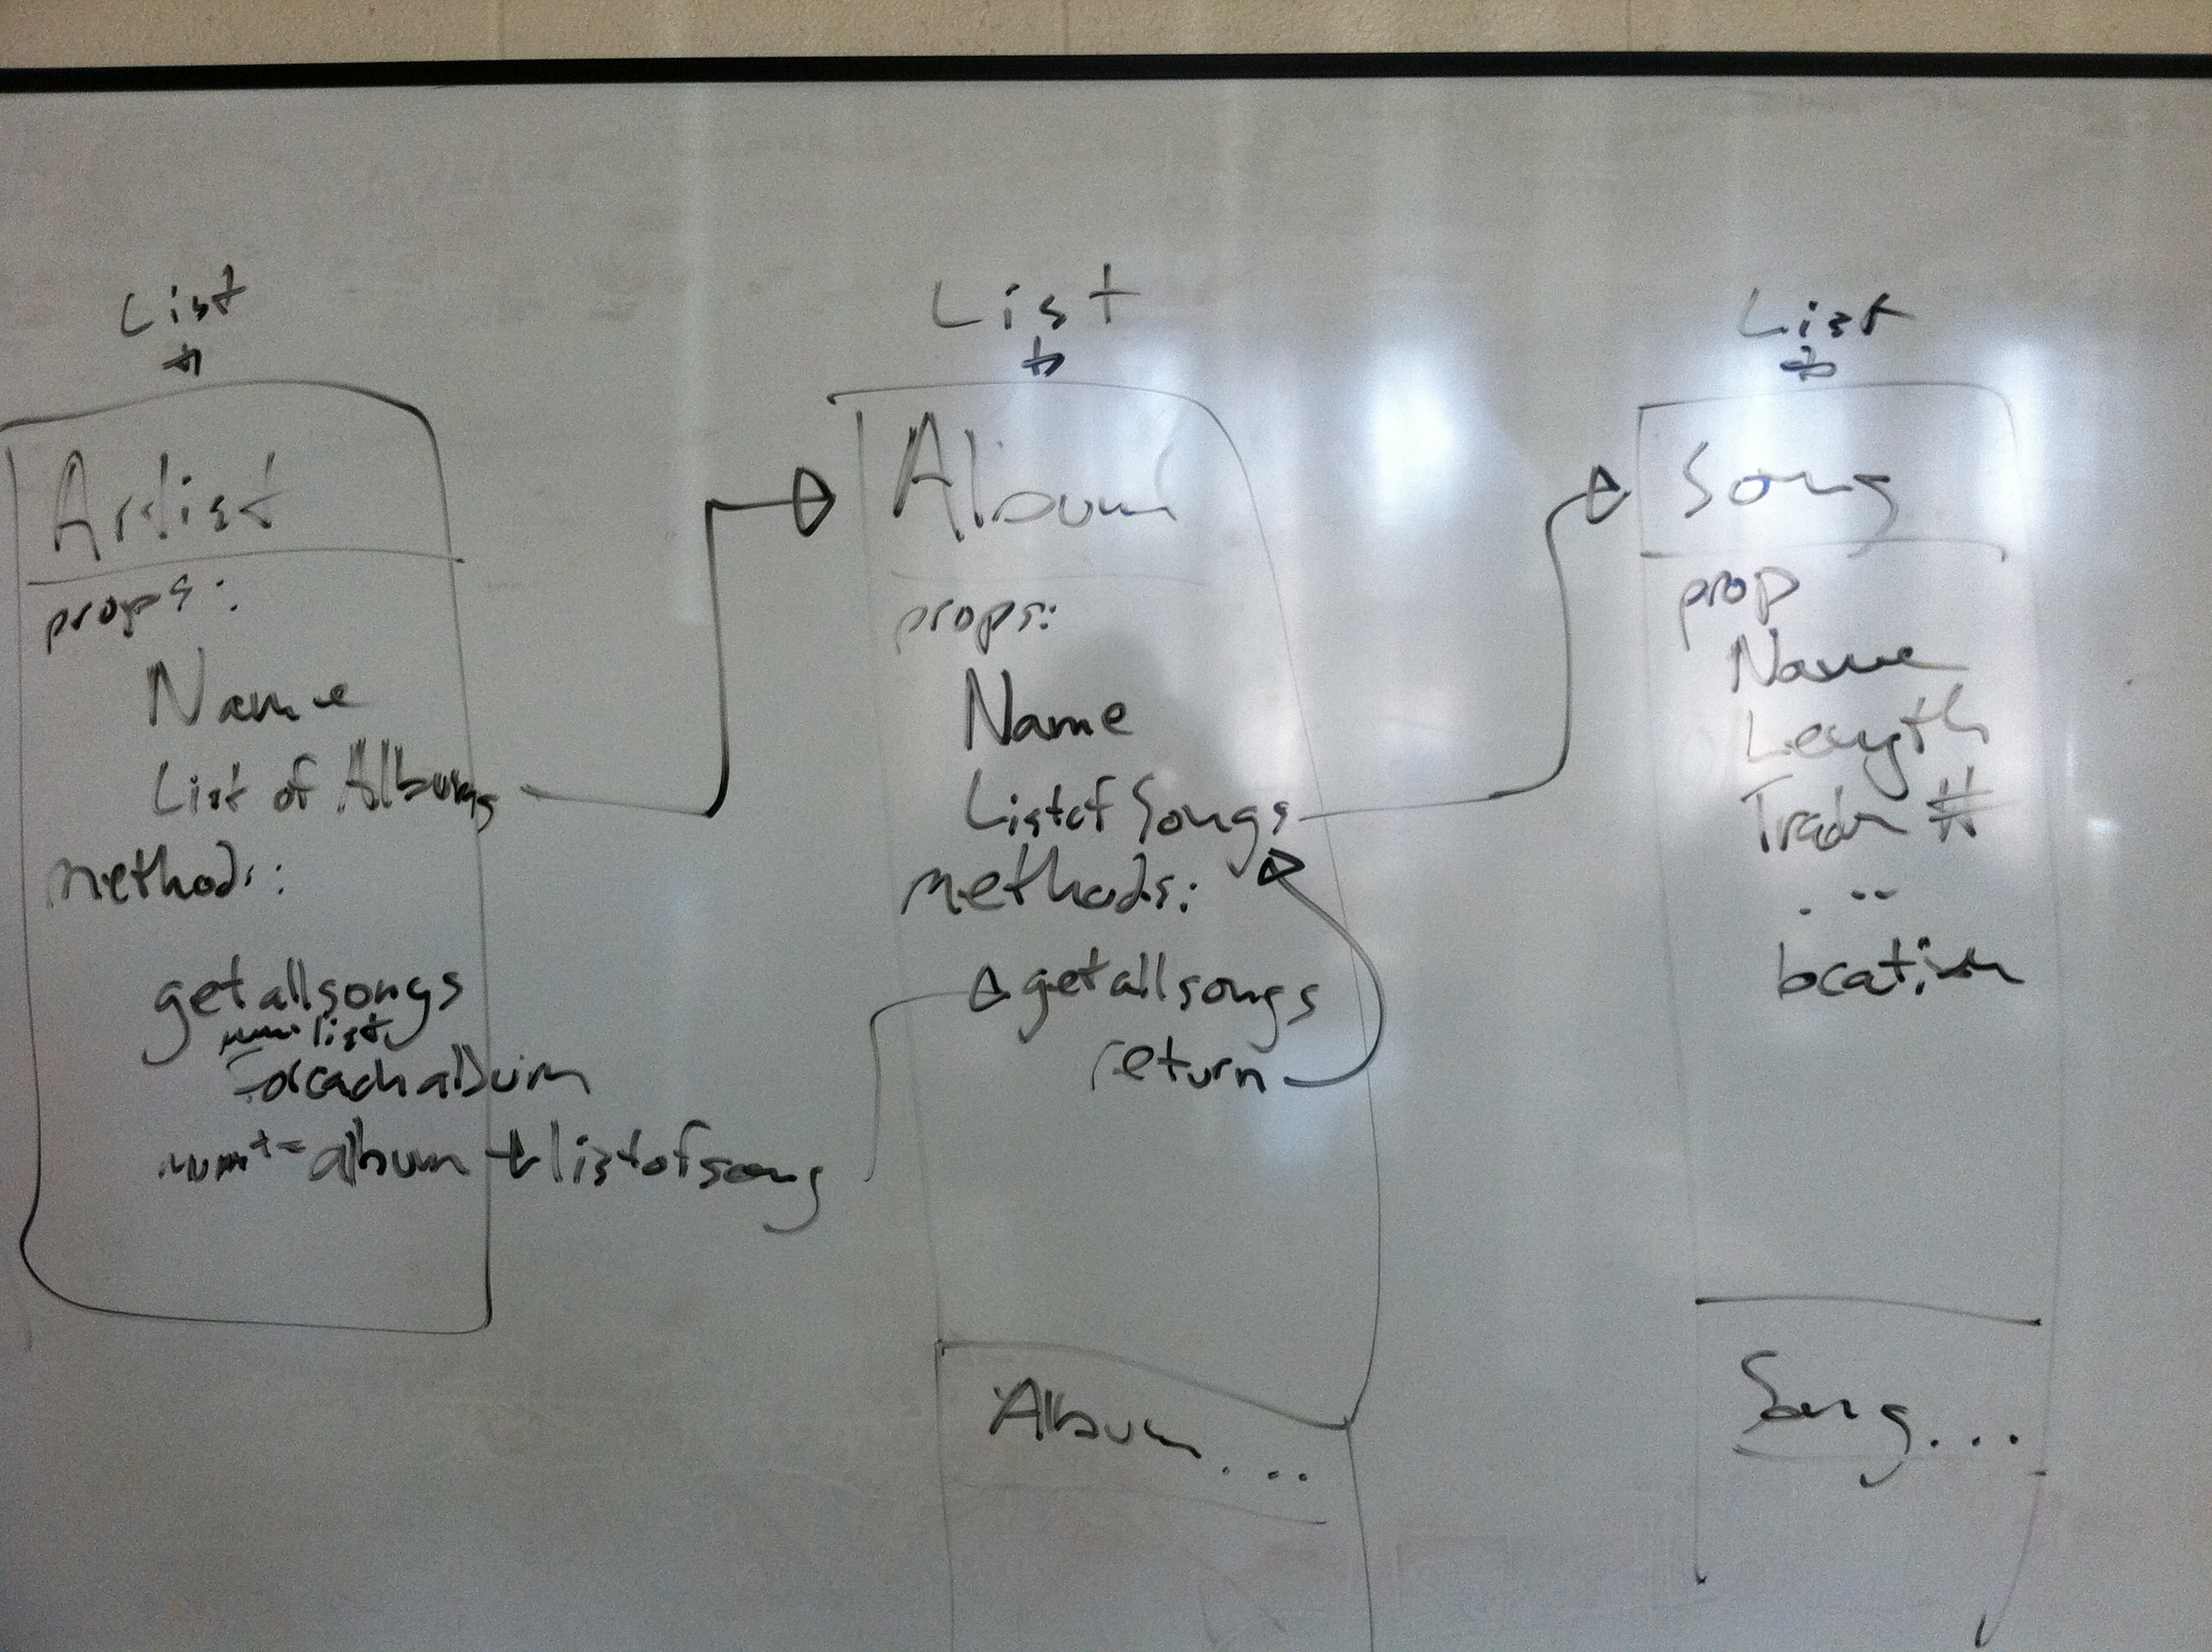 List
Artist
props:
Name
List of Albums
methods:
getallsongs
list
Foreachalbum
+= album → listofsong
List
Album
props:
Name
Listof Songs
methods:
getallsongs
return
Album...
List
Song
prop
Name
Length
Track #
...
location
Song...